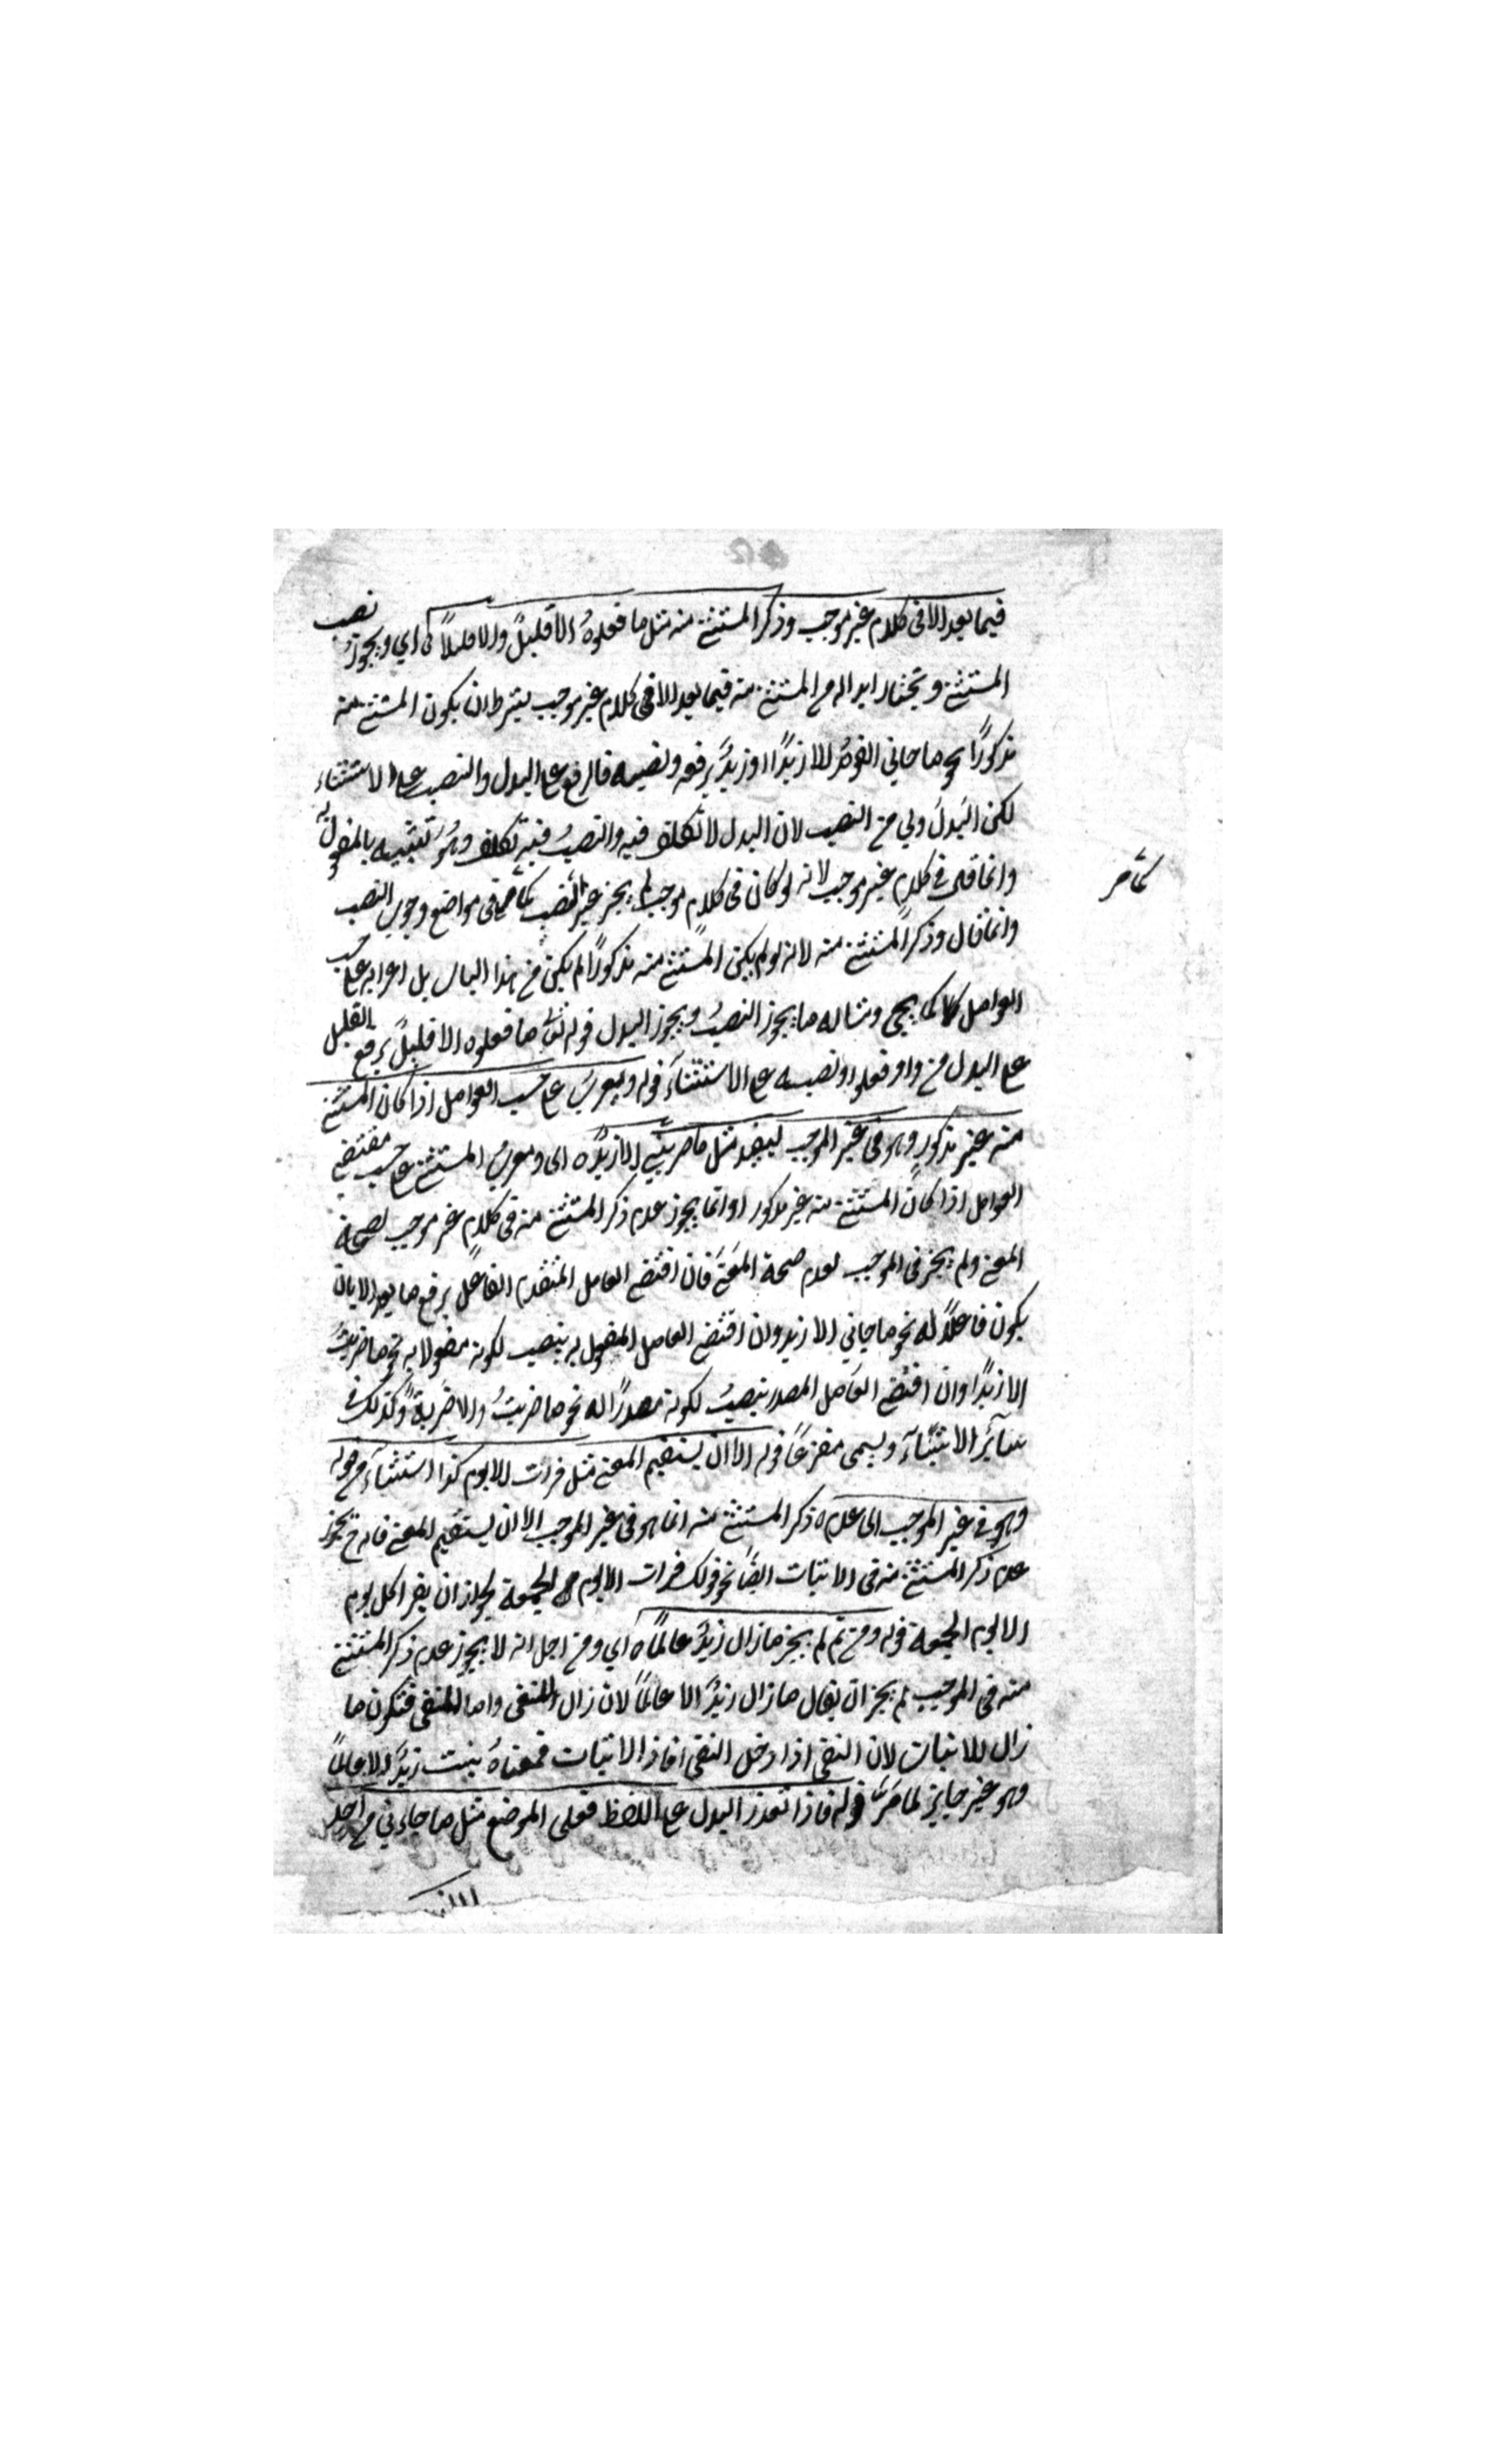 فيما بعد الا فى كلام غير موجب وذكر المستثنى منه مثل ما فعلوهُ الا قليلٌ والا قليلاً اي ويجوز نصب
المستثنى ويختار ابداله من المستثنى منه فيما بعد الا فى كلام غير موجب بشرط ان يكون المستثنى منه
مذكورًا نحو ما جاني القومُ الا زيدًا او زيدٌ برفعه ونصبه فالرفع على البدل والنصب على الاستثناء
لكن البدلَ ولي من النصب لان البدل لا تكلف فيه والنصبُ فيه تكلف وهُو تشبيهه بالمفعول
وانما قال فى كلام غير موجب لانه لو كان فى كلام موجب لم يجز غير النصب كما مر فى مواضع وجوب النصب
كما مر
وانما قال وذكر المستثنى منه لانه لو لم يكن المستثنى منه مذكورًا لم يكن من هذا الباب بل اعرابه على حسب
العوامل كما يجي ومثاله ما يجوز النصبُ ويجوز البدل قوله تعالى ما فعلوه الا قليلٌ برفع القليل
على البدل من واو فعلوا ونصبه على الاستثناء قوله ويعربُ على حسب العوامل اذا كان المستثنى
منه غير مذكور وهو فى غير الموجب ليفيد مثل ما ضربني الا زيدٌ اى ويعرب المستثنى على حسب مقتضى
العوامل اذا كان المستثنى منه غير مذكور وانما يجوز عدم ذكر المستثنى منه فى كلامٍ غير موجب لصحة
المعنى ولم يجز فى الموجب لعدم صحة المعنى فان اقتضى العامل المتقدم الفاعل يرفع ما بعد الا بان
يكون فاعلاً له نحو ما جاني الا زيد وان اقتضى العامل المفعول به ينصب لكونه مفعولا به نحو ما ضربتُ
الا زيدًا وان اقتضى العامل المصدر ينصبُ لكونه مصدرًا له نحو ما ضربتُ الا ضربةً وكذلك فى
سائر الاشياء ويسمى مفرغًا قوله الا ان يستقيم المعنى مثل قرات الا يوم كذا استثناء من قوله
وهو فى غير الموجب اى عدم ذكر المستثنى منه انما هو فى غير الموجب الا ان يستقيم المعنى فانه ح يجوز
عدم ذكر المستثنى منه فى الاثبات ايضًا نحو قولك قرات الا يوم الجمعة لجواز ان يقرا كل يوم
الا يوم الجمعة قوله ومن ثم لم يجز ما زال زيدٌ الا عالمًا اي ومن اجل انه لا يجوز عدم ذكر المستثنى
منه فى الموجب لم يجز ان يقال ما زال زيدٌ الا عالمًا لان زال للنفى وما للنفى فتكون ما
زال للاثبات لان النفى اذا دخل النفى افاد الاثبات فمعناهُ يثبت زيدٌ الا عالمًا
وهو غير جايز لما مَرَّ قوله فاذا تعذر البدل على اللفظ فعلى الموضع مثل ما جاءني من احد